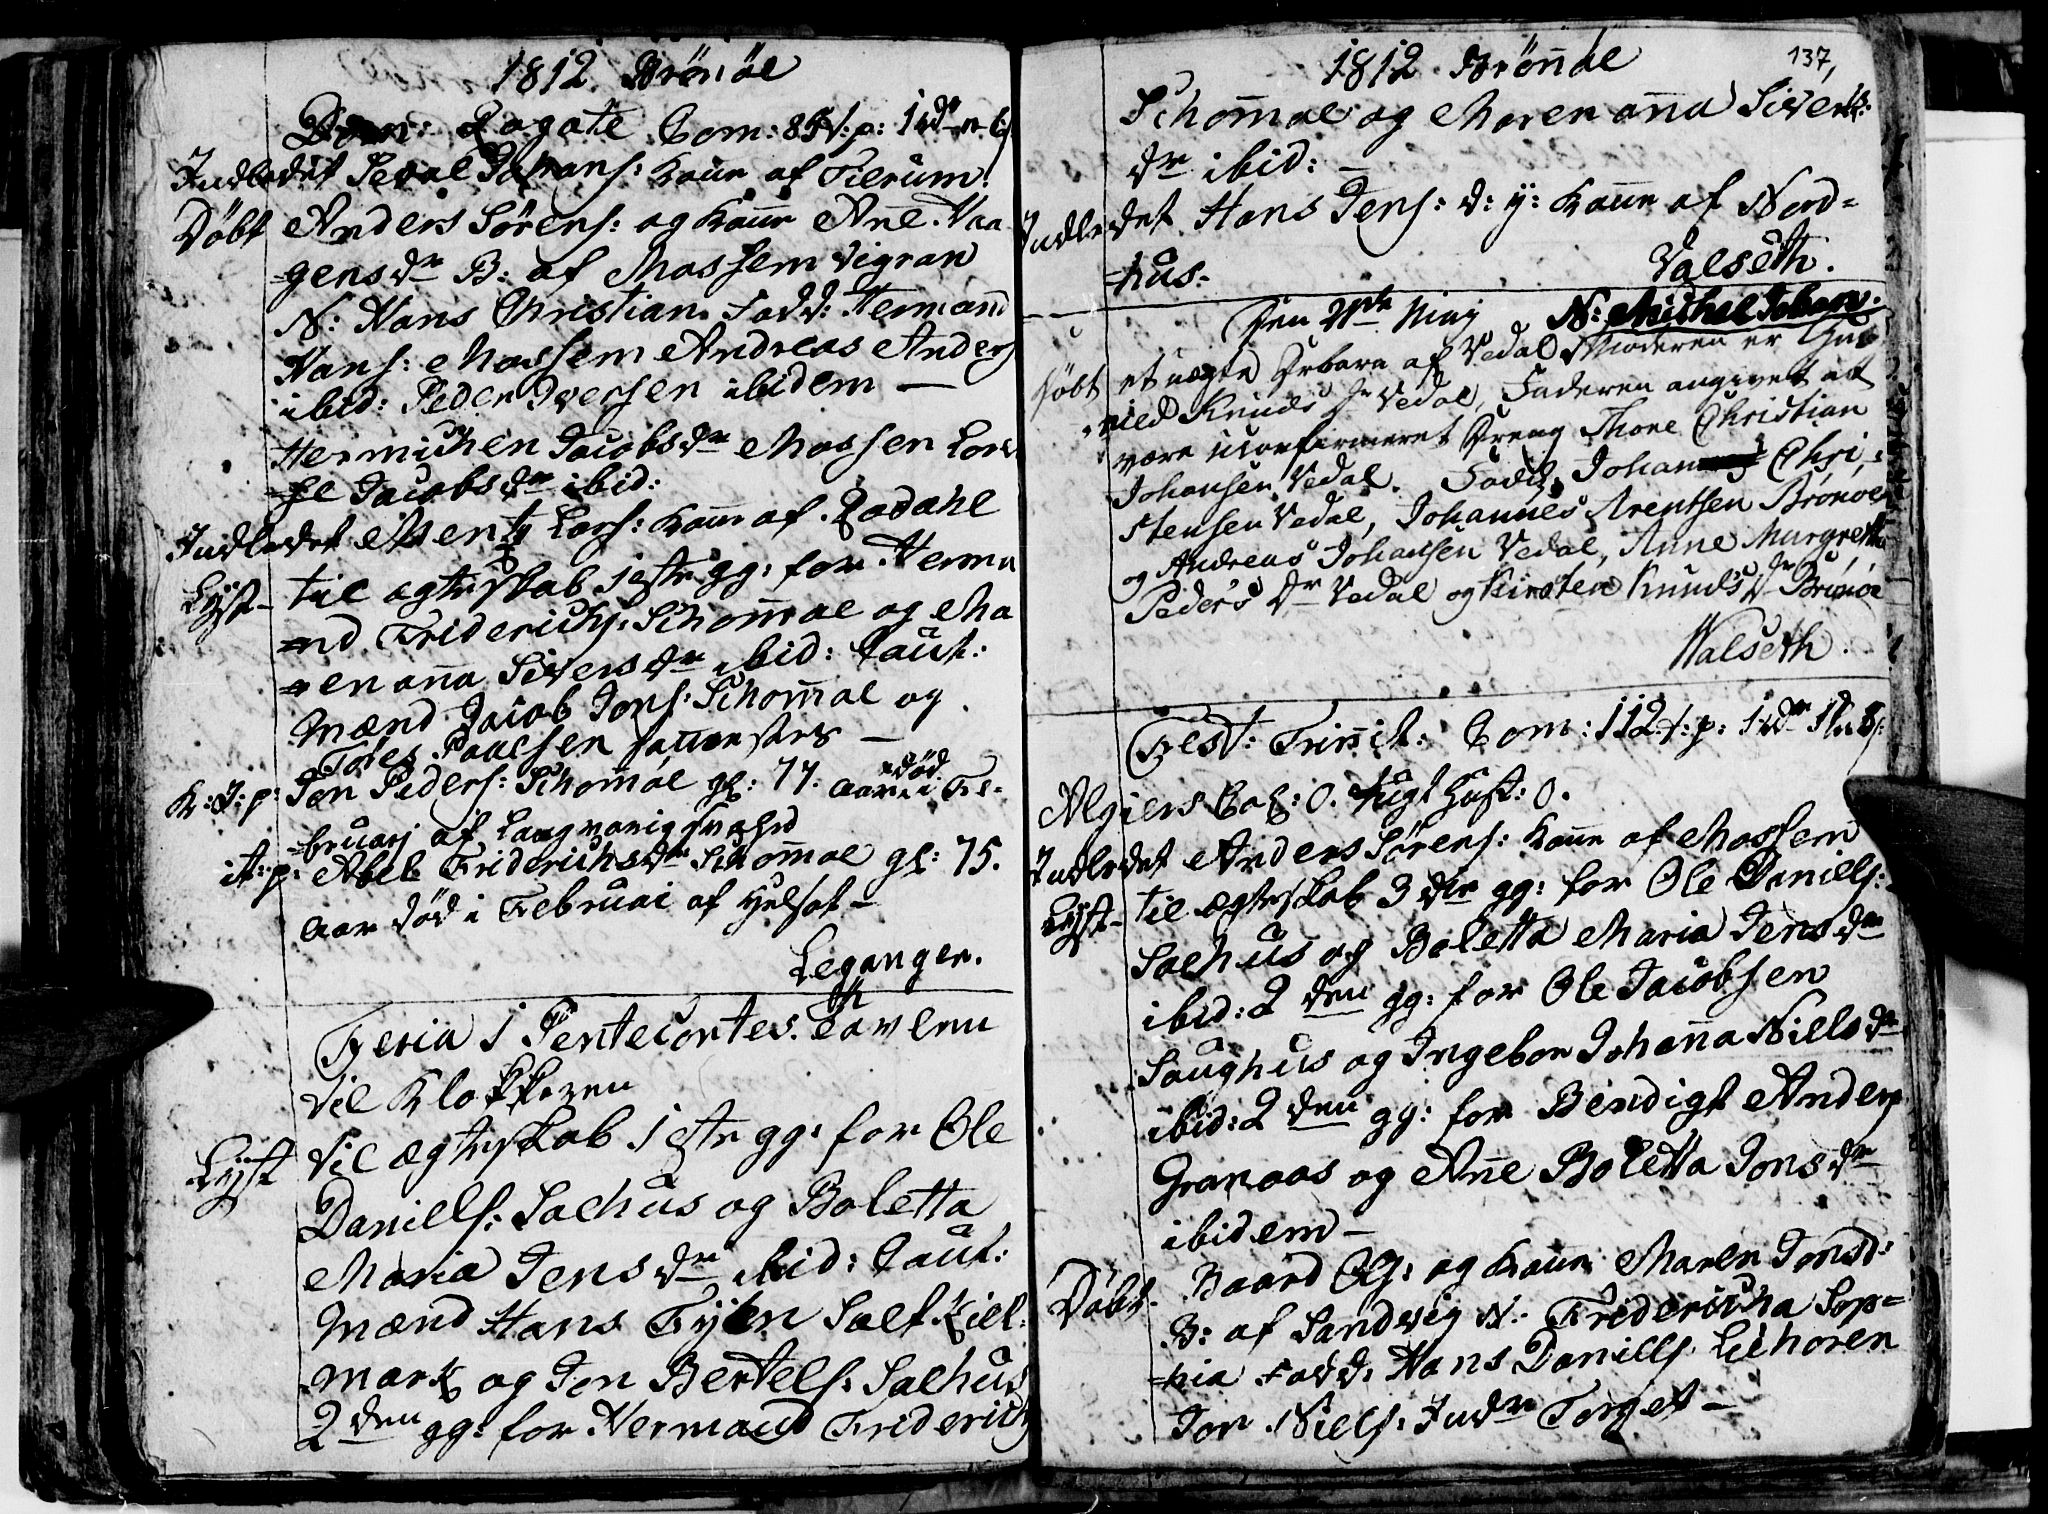 1812. Brönöe
Dom: Rogate Com: 85 p:
Indledet Seval Johans: Kone af Tierum.
Döbt Anders Sörens: og Kone Anne Haa
=gensdr B: af Mossem Vigran
N: Hans Christian. Fadd: Hermand
Hans: Mossem Andreas Anders
ibid: Peder Iversen ibidem —
Hermichen Jacobsdr Mossen Lov
=se Jacobsdr ibid:
Indledet Mentz Lars: Kone af Rodahl
Lyst- til ægteskab 1ste gg: for Herma
=nd Friderichs: Schommoe og Ma
=en anna Siversdr ibid: Caut:
Mænd Jacob Jons: Schommoe og
Tores Paalsen
K: J: p: Jon Peders: Schommoe gl: 77. aar død i Fe-
=bruarj af Langvarig
it: p: Abel Friderichsdr Schommoe gl: 75.
aar død i Februai af
Leganger.
Feria 1 Pentecostes. Tavlen
til Klokkeren
Lyst til ægteskab 1ste gg: for Ole
Daniells: Salhus og Boletta
Maria Jensdr ibid: Caut:
Mænd Hans
mark og Jon Bertels: Salhus
2den gg: for Hermand Friderich
1812 Brönnöe
137,
Schommoe og Maren anna Sivers:
dr ibid: —
Indledet Hans Jens: d: y: Kone af Nord=
=hus. Valseth.
Den May N: Michel Johan.
Döbt et uægte af Vedal Moderen er Gun
nild Knuds Dr Vedal, Faderen angivet at
være uconfirmeret Dreng Thore Christian
Johansen Vedal. Fadd: Johan Chri,
stensen Vedal, Johannes Arentsen Brönöe
og Andreas Johansen Vedal, Anne Margrethe
Peders Dr Vedal og Kirsten Knuds Dr Brönöe
Walseth.
Fest: Trinit: Com: 112 p:
Algiers Col: 0. Tugt Hust: 0.
Indledet Anders Sörens: Kone af Mossem
Lyst- til ægteskab 3die gg: for Ole Daniells:
Salhus og Boletta Maria Jensdr
ibid: 2den gg: for Ole Jacobsen
Saughus og Ingebor Johanna Nielsdr
ibid: 2den gg: for Bendigt Anders
Granaas og Anne Boletta Jonsdr
ibidem —
Döbt. Baard Ols: og Kone Maren Jonsd:
B: af Sandvig N: Fridericha Sop=
=hia Fadd: Hans Daniells
Jon Niels: Indr Torget —